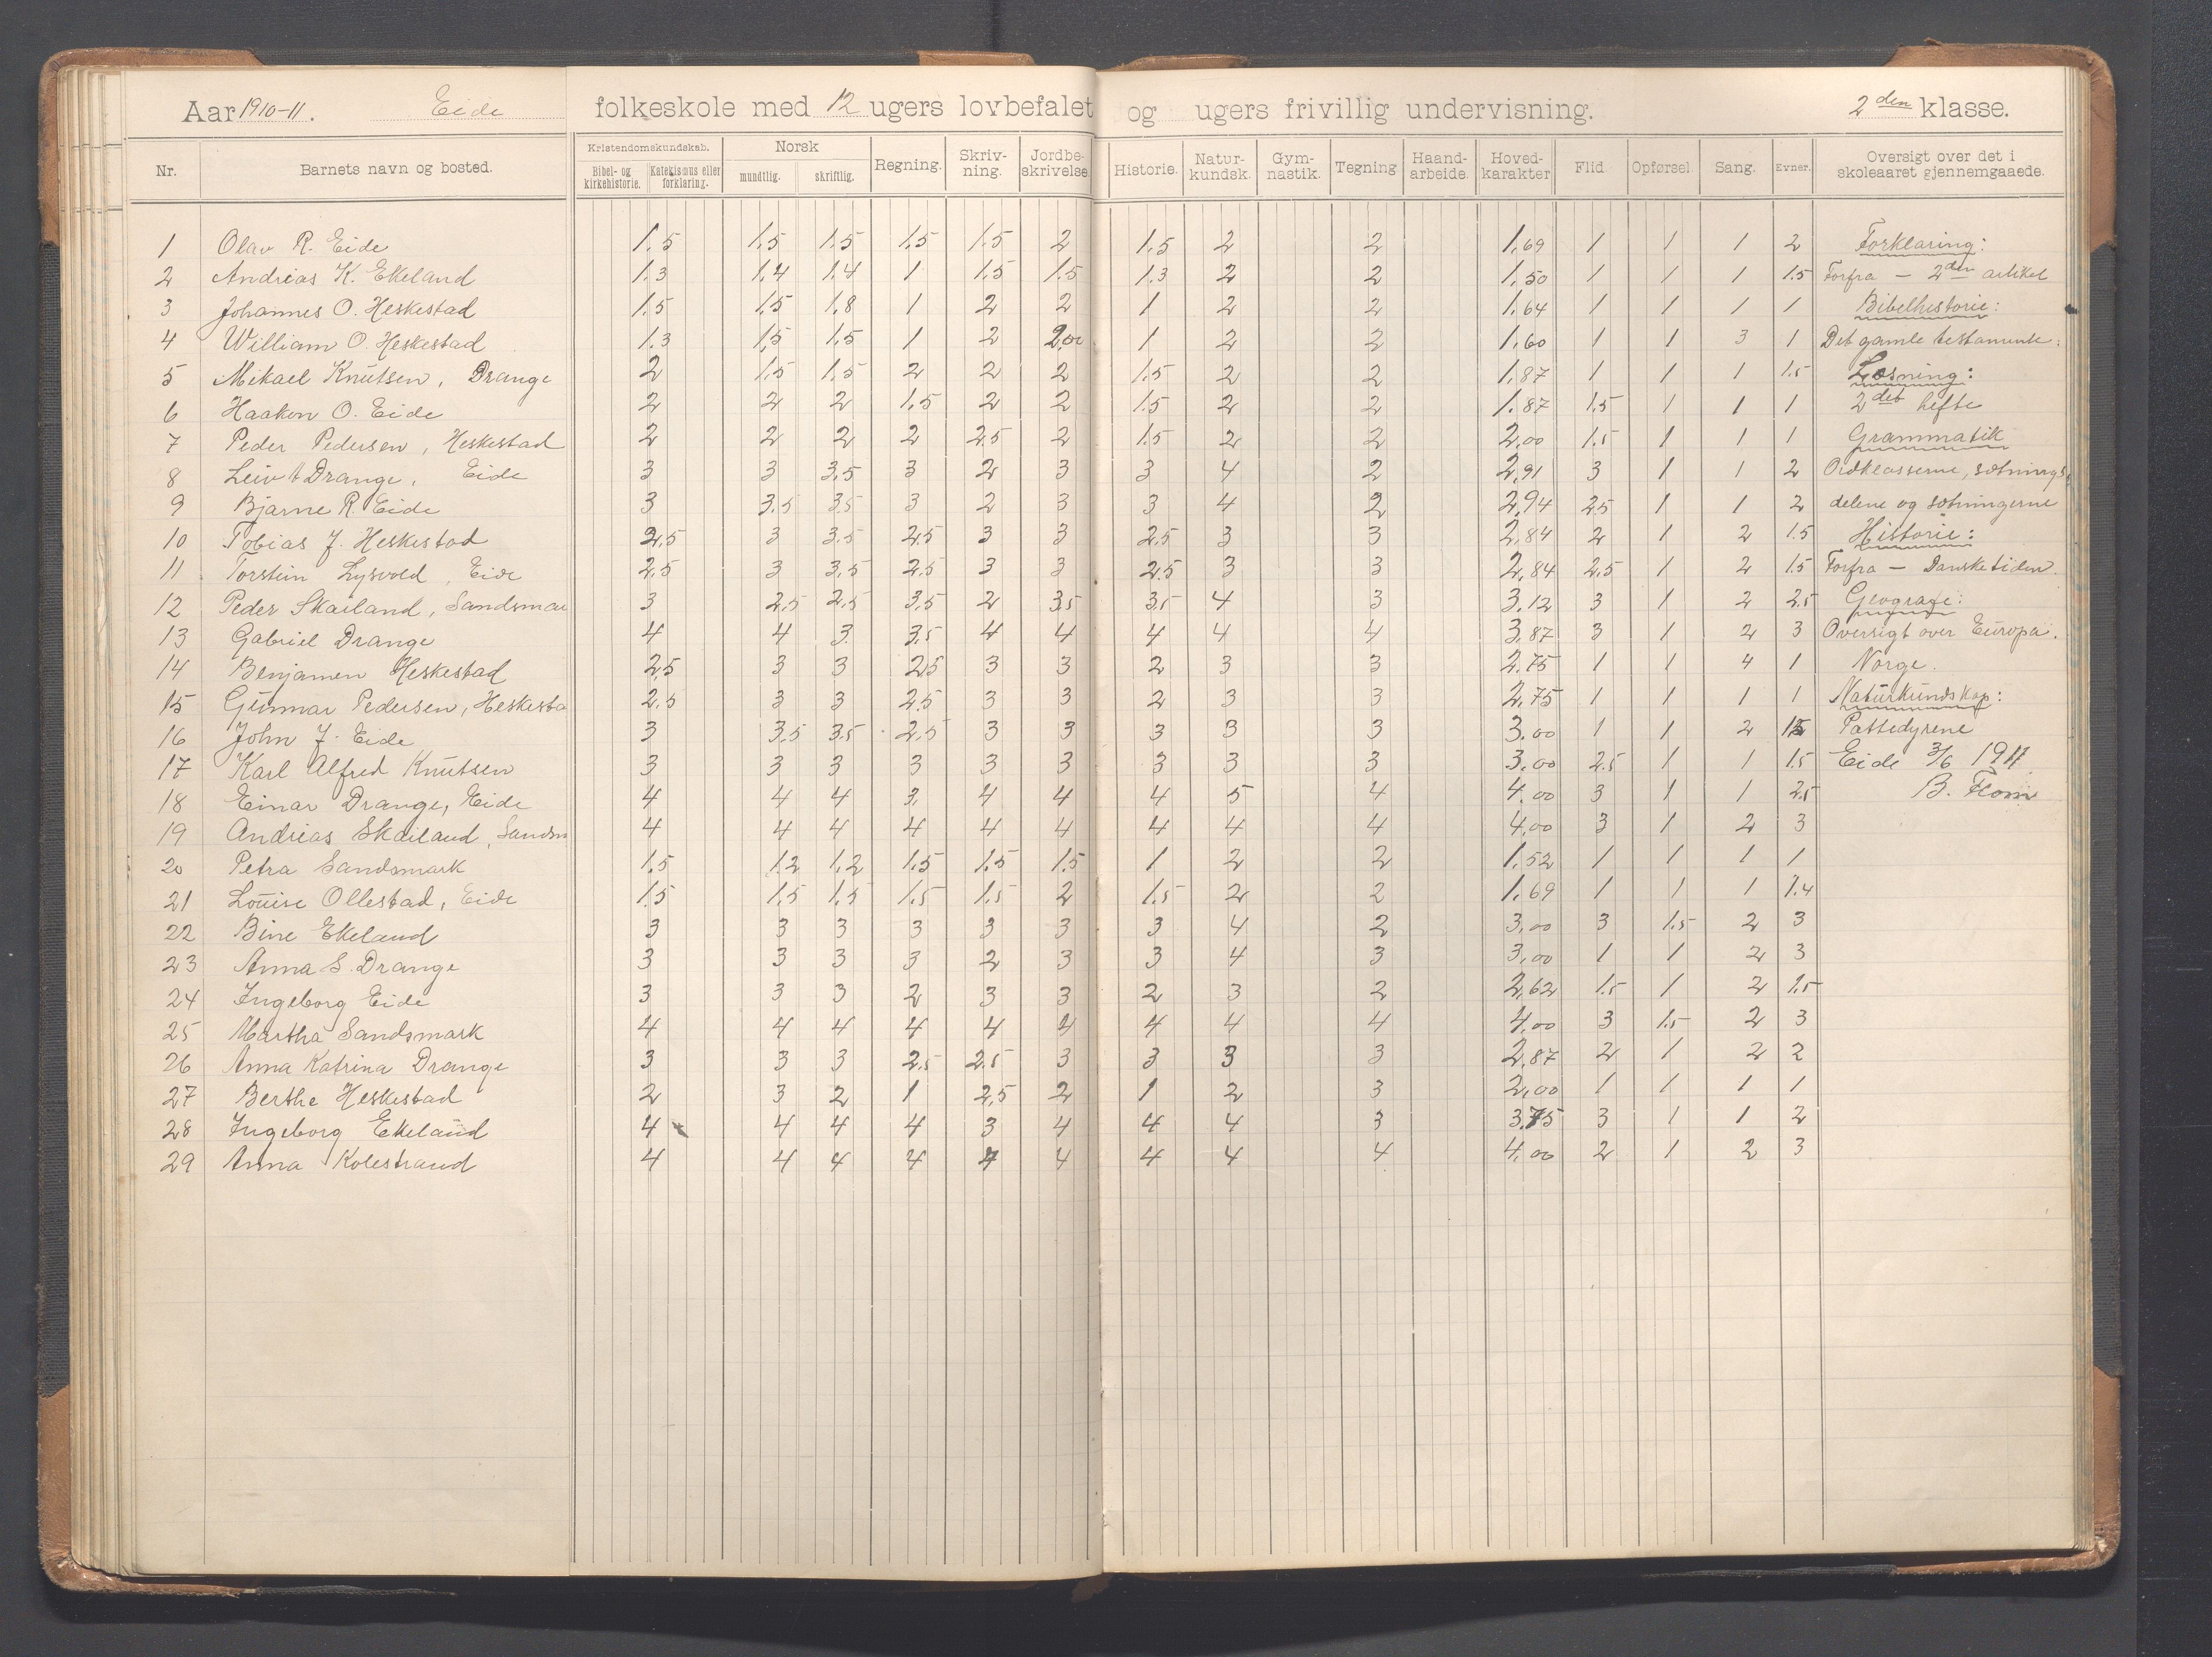 Aar 1910-11. Eide folkeskole med 12 ugers lovbefalet og ugers frivillig undervisning. 2den klasse.
Nr. Barnets navn og bosted. Kristendomskundskab. Bibel- og kirkehistorie. Katekismus eller forklaring. Norsk mundtlig. skriftlig. Regning. Skriv-ning. Jordbe-skrivelse. Historie. Natur-kundsk. Gym-nastik. Tegning Haand-arbeide. Hoved-karakter Flid Opførsel. Sang. Evner. Oversigt over det i skoleaaret gjennemgaaede.
1 Olav R. Eide 1.5 1.5 1.5 1.5 1.5 2 1.5 2 2 1.69 1 1 1 2 Forklaring:
2 Andreas K. Ekeland 1.3 1.4 1.4 1 1.5 1.5 1.3 2 2 1.50 1 1 1 1.5 Forfra — 2den artikel
3 Johannes O. Heskestad 1.5 1.5 1.8 1 2 2 1 2 2 1.64 1 1 1 1 Bibelhistorie:
4 William O. Heskestad 1.3 1.5 1.5 1 2 2,00 1 2 2 1.60 1 1 3 1 Det gamle testamente.
5 Mikael Knutsen, Drange 2 1.5 1.5 2 2 2 1.5 2 2 1.87 1 1 1 1.5 Læsning:
6 Haakon O. Eide 2 2 2 1.5 2 2 1.5 2 2 1.87 1.5 1 1 1 2det hefte
7 Peder Pedersen, Heskestad 2 2 2 2 2.5 2 1.5 2 2 2,00 1.5 1 1 1 Grammatik
8 Leiv Drange, Eide 3 3 3.5 3 2 3 3 4 2 2,91 3 1 1 2 Ordklasserne, sætnings
9 Bjarne R. Eide 3 3.5 3.5 3 2 3 3 4 2 2,94 2.5 1 1 2 delene og sætningerne
10 Tobias J. Heskestad 2,5 3 3.5 2.5 3 3 2.5 3 3 2,84 2 1 2 1.5 Historie:
11 Torstein Lysvold, Eide 2,5 3 3,5 2.5 3 3 2.5 3 3 2,84 2,5 1 2 1.5 Forfra — Dansketiden.
12 Peder Skailand, Sandsmar 3 2,5 2,5 3,5 2 3.5 3.5 4 3 3,12 3 1 2 2.5 Geografi:
13 Gabriel Drange 4 4 3 3,5 4 4 4 4 4 3,87 3 1 2 3 Oversigt over Europa.
14 Benjamen Heskestad 2,5 3 3 2,5 3 3 2 3 3 2.75 1 1 4 1 Norge.
15 Gunnar Pedersen, Heskesta 2.5 3 3 2.5 3 3 2 3 3 2,75 1 1 1 1 Naturkundskap:
16 John J. Eide 3 3.5 3.5 2.5 3 3 3 3 3 3.00 1 1 2 1.5 Pattedyrene
17 Karl Alfred Knutsen 3 3 3 3 3 3 3 3 3 3.00 2.5 1 1 1.5 Eide 3/6 1911
18 Einar Drange, Eide 4 4 4 3, 4 4 4 5 4 4.00 3 1 1 2.5 B. Flom
19 Andreas Skailand, Sandsm 4 4 4 4 4 4 4 4 4 4,00 3 1 2 3
20 Petra Sandsmark 1.5 1.2 1,2 1,5 1.5 1.5 1 2 2 1.52 1 1 1 1
21 Louise Ollestad, Eide 1.5 1.5 1.5 1.5 1.5 2 1.5 2 2 1.69 1 1 1 1.4
22 Bine Ekeland 3 3 3 3 3 3 3 4 2 3,00 3 1.5 2 3
23 Anna S. Drange 3 3 3 3 2 3 3 4 3 3,00 1 1 2 3
24 Ingeborg Eide 3 3 3 2 3 3 2 3 2 2,62 1.5 1 2 1.5
25 Martha Sandsmark 4 4 4 4 4 4 4 4 4 4,00 3 1.5 2 3
26 Anna Katrina Drange 3 3 3 2.5 2.5 3 3 3 3 2,87 2 1 2 2
27 Berthe Heskestad 2 3 2 1 2,5 2 1 2 3 2,00 1 1 1 1
28 Ingeborg Ekeland 4 4 4 4 3 4 4 4 3 3.75 3 1 1 2
29 Anna Kolestrand 4 4 4 4 4 4 4 4 4 4.00 2 1 2 3